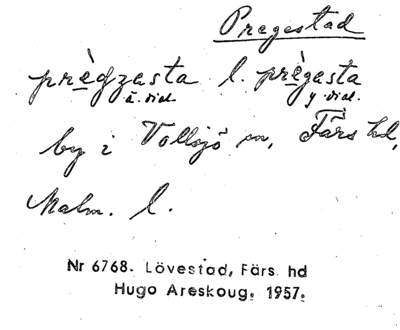 Pregestad
prègzesta l. prègesta
ä. dial. y. dial.
by i Vollsjö sn, Färs hd,
Malm. l.
Nr 6768. Lövestad, Färs hd
Hugo Areskoug. 1957.